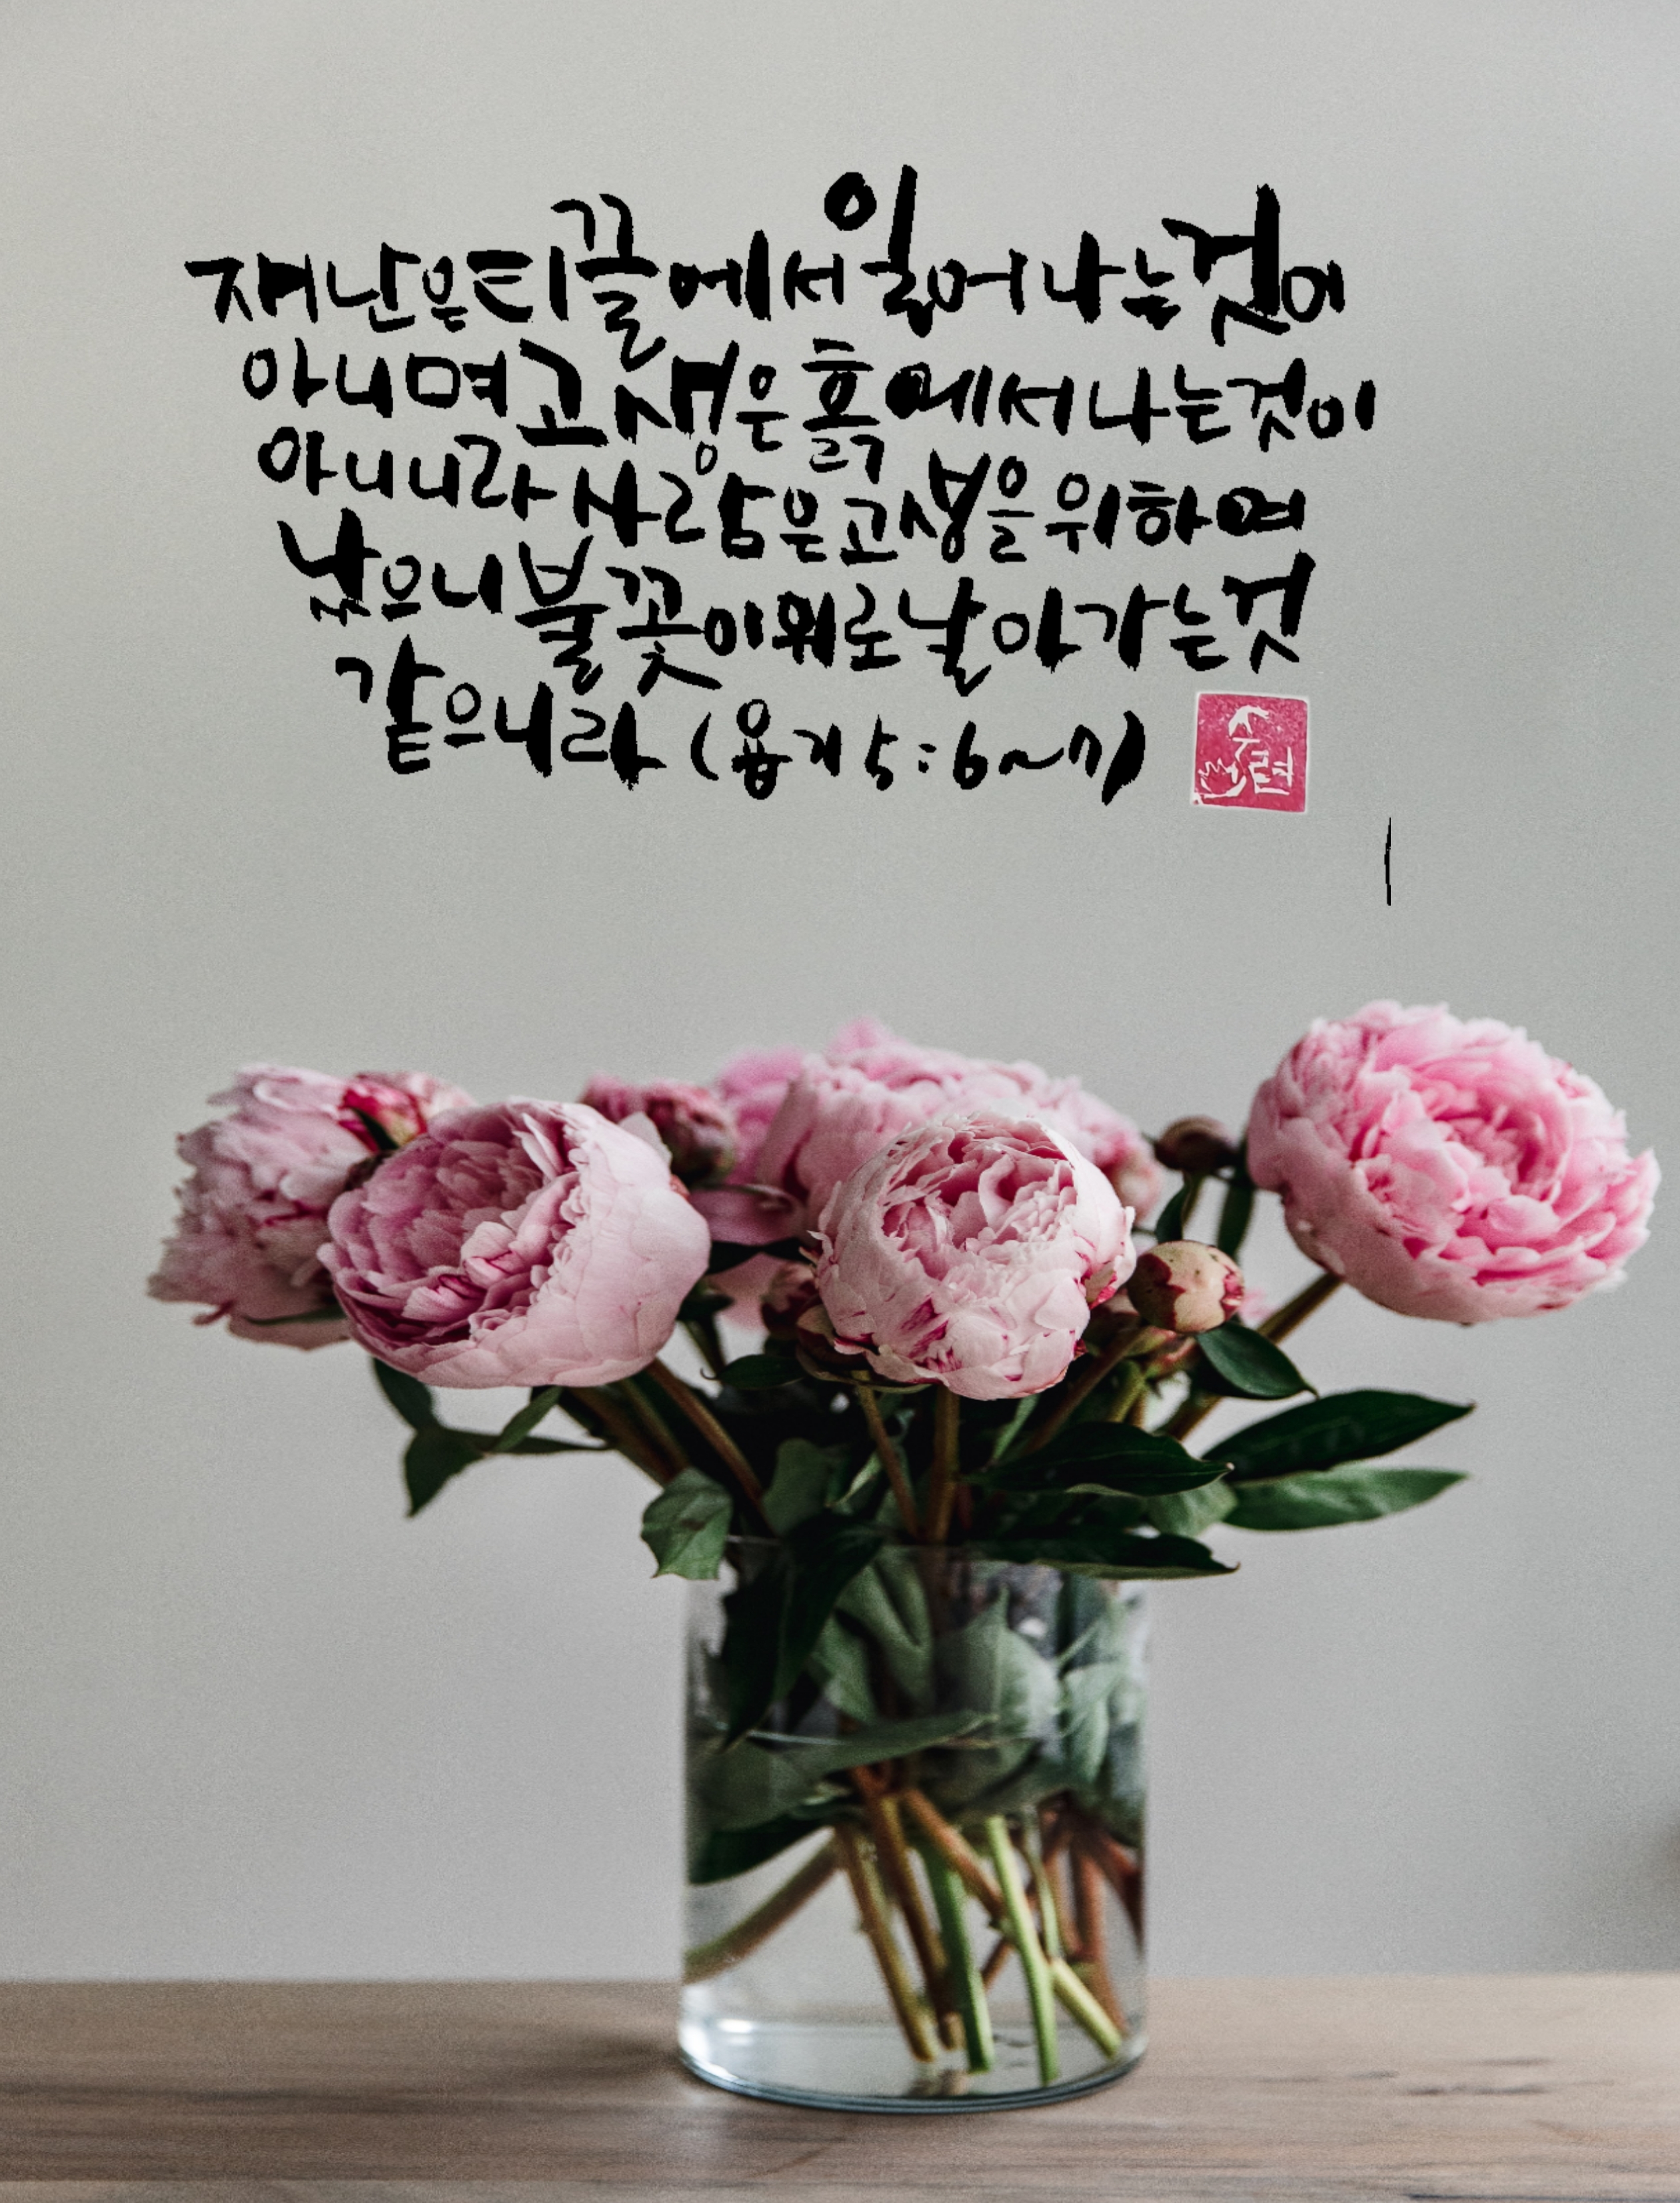 재난은 티끌에서 일어나는 것이
아니며 고생은 흙에서 나는 것이
아니니라 사람은 고생을 위하여
났으니 불꽃이 위로 날아가는 것
같으니라 (욥기 5:6~7)
수련